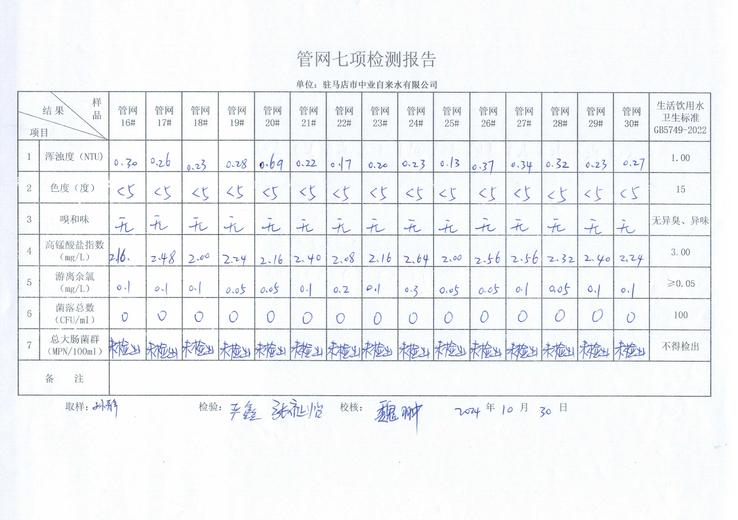 管网七项检测报告
单位：驻马店市中业自来水有限公司
结果 样品 项目 管网16# 管网17# 管网18# 管网19# 管网20# 管网21# 管网22# 管网23# 管网24# 管网25# 管网26# 管网27# 管网28# 管网29# 管网30# 生活饮用水卫生标准GB5749-2022
1 浑浊度（NTU） 0.30 0.26 0.23 0.28 0.69 0.22 0.17 0.20 0.23 0.13 0.37 0.34 0.32 0.23 0.27 1.00
2 色度（度） <5 <5 <5 <5 <5 <5 <5 <5 <5 <5 <5 <5 <5 <5 <5 15
3 嗅和味 无 无 无 无 无 无 无 无 无 无 无 无 无 无 无 无异臭、异味
4 高锰酸盐指数（mg/L） 216. 2.48 2.00 2.24 2.16 2.40 2.08 2.16 2.64 2.00 2.56 2.56 2.32 2.40 2.24 3.00
5 游离余氯（mg/L） 0.1 0.1 0.1 0.05 0.05 0.1 0.2 0.1 0.3 0.05 0.05 0.1 0.05 0.1 0.1 ≥0.05
6 菌落总数（CFU/ml） 0 0 0 0 0 0 0 0 0 0 0 0 0 0 0 100
7 总大肠菌群（MPN/100ml） 未检出 未检出 未检出 未检出 未检出 未检出 未检出 未检出 未检出 未检出 未检出 未检出 未检出 未检出 未检出 不得检出
备 注
取样： 检验： 校核： 2024 年 10 月 30 日